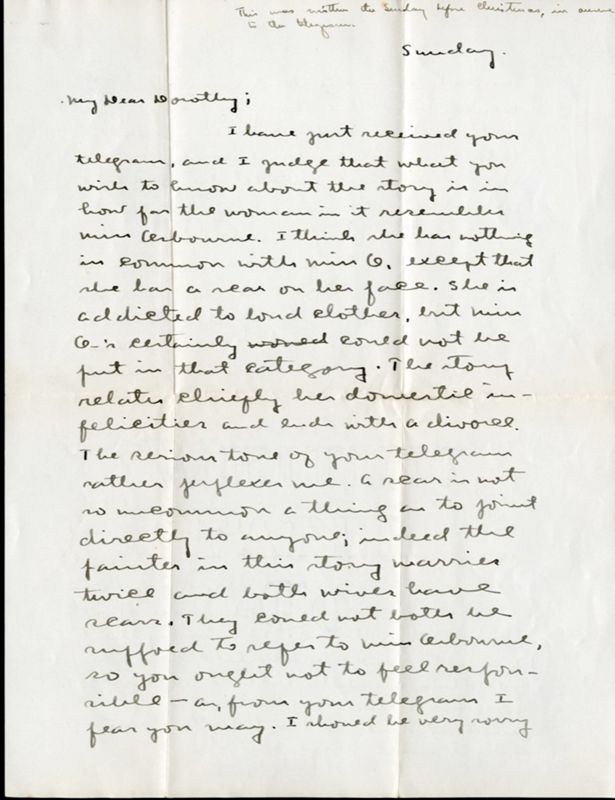 This was written the Sunday before Christmas, in answer
to the telegram.
Sunday.
My Dear Dorothy;
I have just received your
telegram, and I judge that what you
wish to know about the story is in
how far the woman in it resembles
Miss Osbourne. I think she has nothing
in common with Miss O, except that
she has a scar on her face. She is
addicted to loud clothes, but Miss
O-'s certainly could not be
put in that category. The story
relates chiefly her domestic in-
felicities and ends with a divorce.
The serious tone of your telegram
rather perplexes me. A scar is not
so uncommon a thing as to point
directly to anyone; indeed the
painter in this story marries
twice and both wives have
scars. They could not both be
suppsed to refer to Miss Osbourne,
so you ought not to feel respon-
sible – as, from your telegram I
fear you may. I should be very sorry